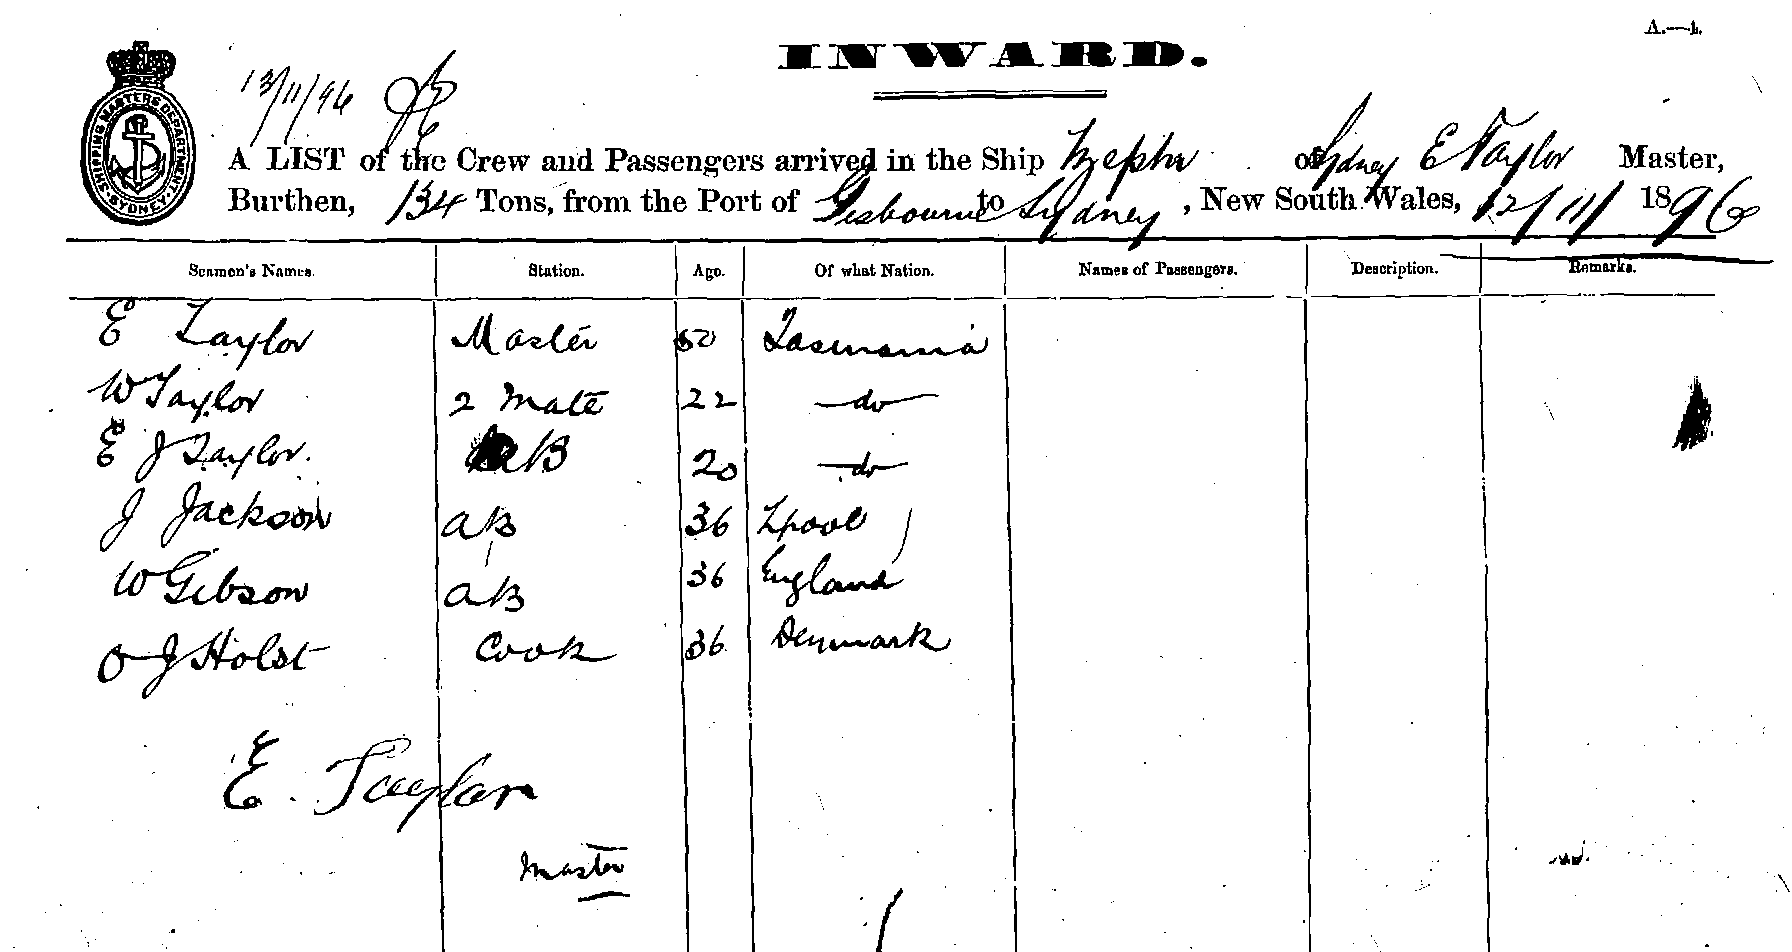 A.—1.
INWARD.
SHIPPING MASTERS DEPARTMENT. SYDNEY.
13/11/96
A LIST of the Crew and Passengers arrived in the Ship Zephr of Sydney E Taylor Master,
Burthen, 134 Tons, from the Port of Gisbourne to Sydney, New South Wales, 12/11/ 1896
Seamen's Names. Station. Age. Of what Nation. Names of Passengers. Description. Remarks.
E Taylor Master 50 Tasmania
W Taylor 2 Mate 22 do
E J Taylor. AB 20 do
J Jackson AB 36 Lpool
W Gibson AB 36 England
O J Holst Cook 36 Denmark
E. Taylor
Master